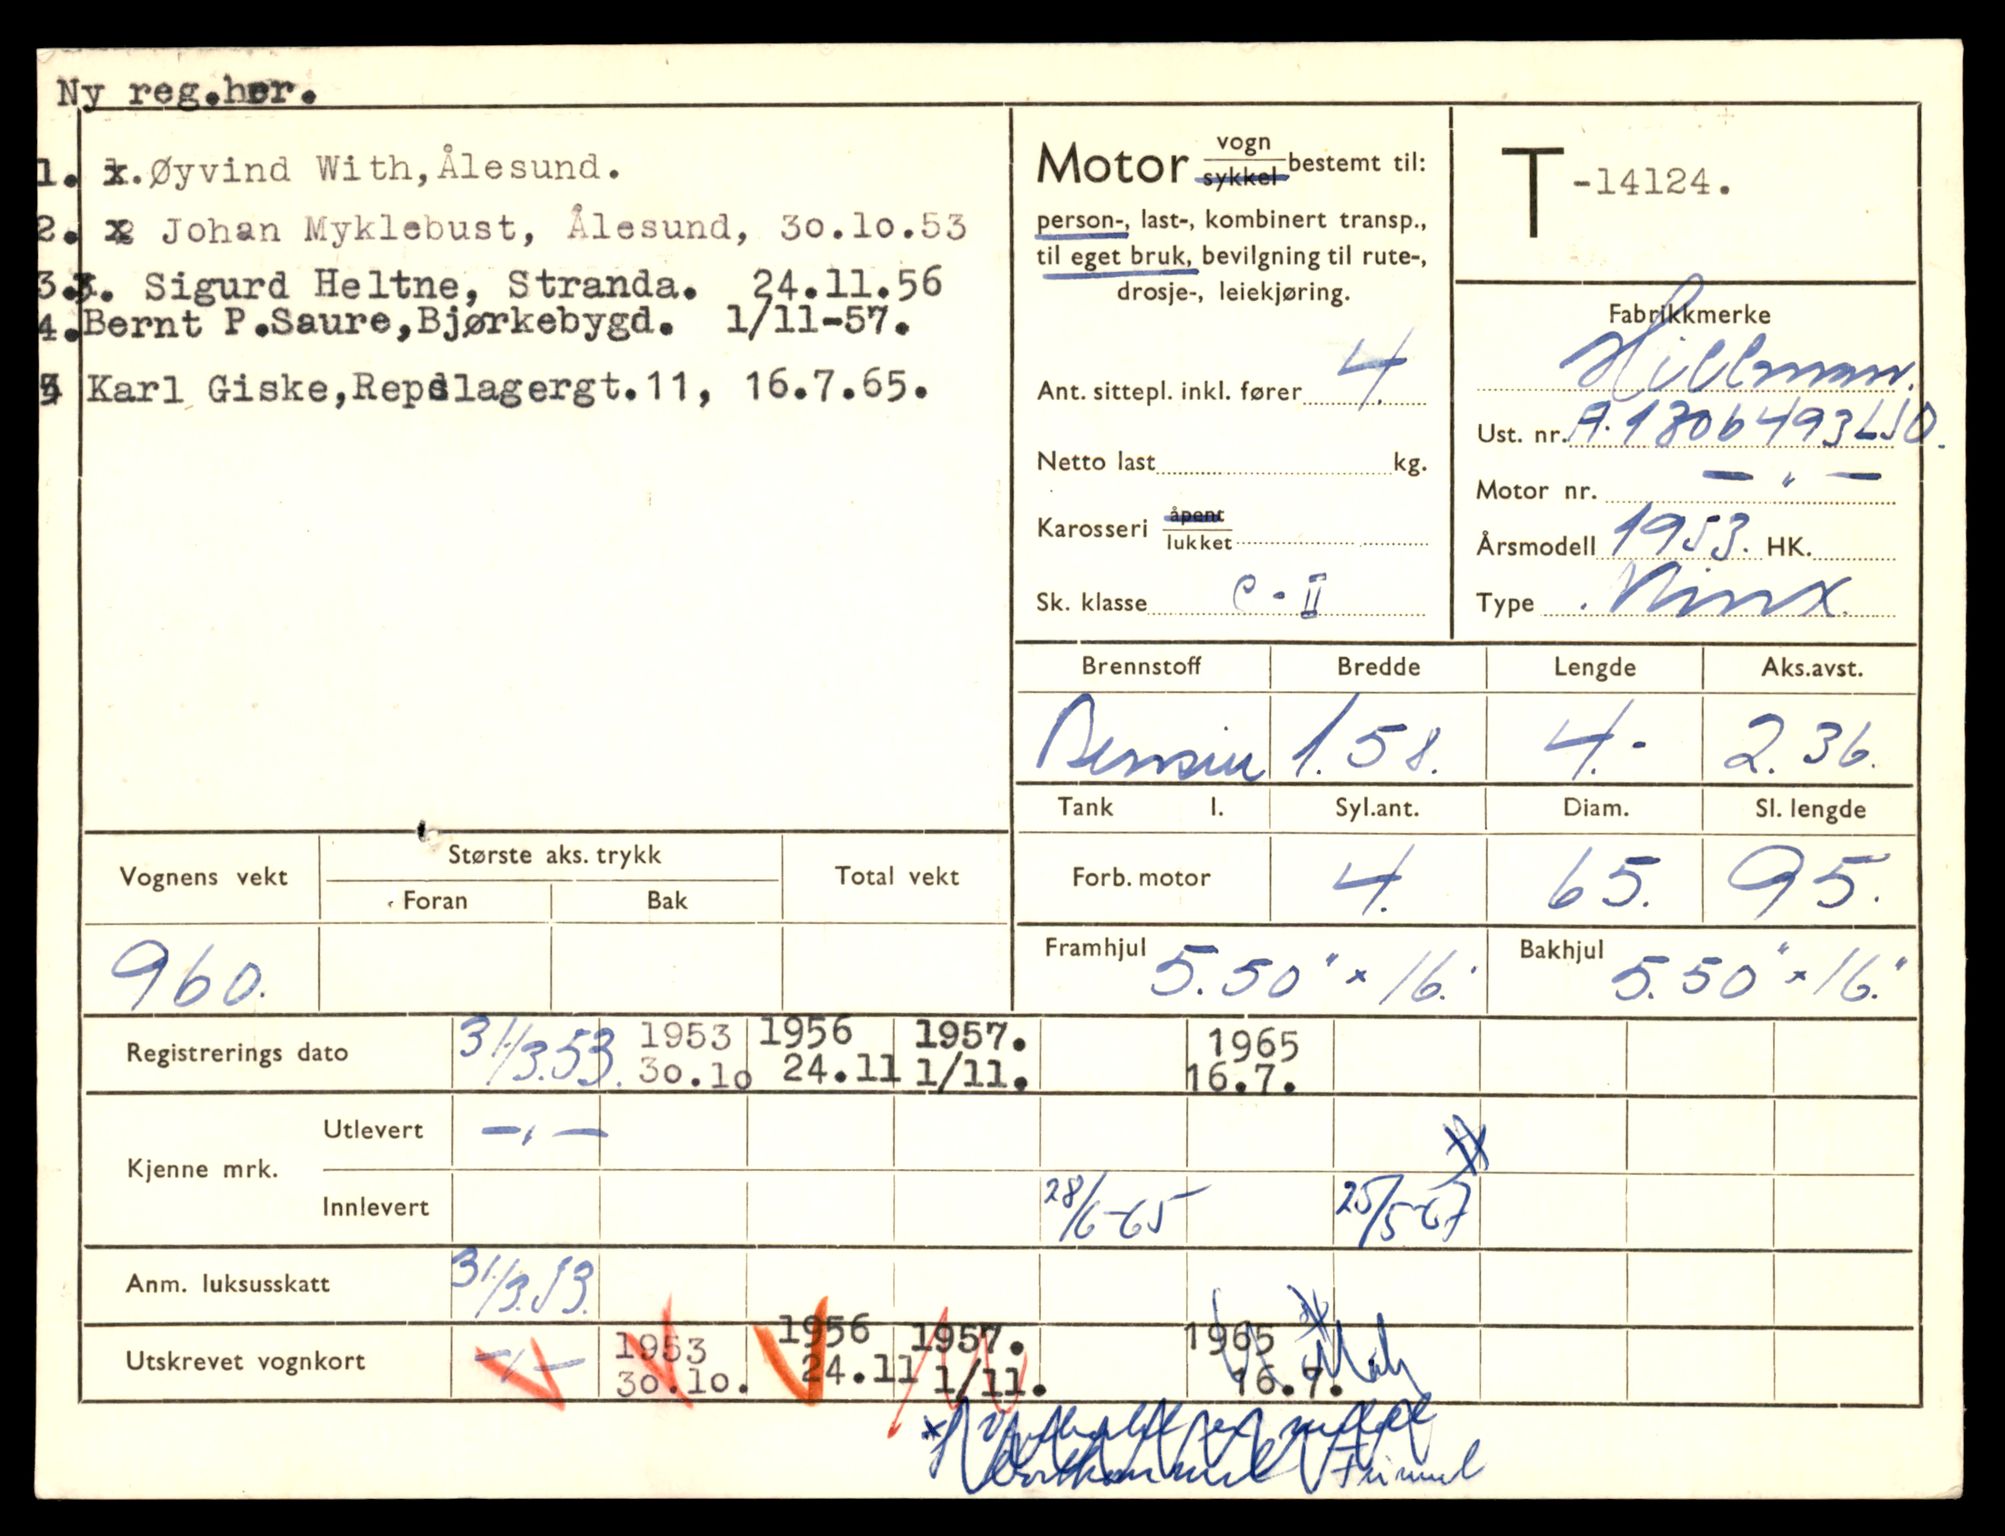 Ny reg.her.
1. Øyvind With, Ålesund.
2. Johan Myklebust, Ålesund, 30.10.53
3. Sigurd Heltne, Stranda. 24.11.56
4. Bernt P.Saure,Bjørkebygd. 1/11-57.
5 Karl Giske,Repslagergt.11, 16.7.65.
Motor vogn sykkel bestemt til:
person-, last-, kombinert transp.,
til eget bruk, bevilgning til rute-,
drosje-, leiekjøring.
Ant. sittepl. inkl. fører 4.
Netto last kg.
Karosseri åpent lukket
Sk. klasse C-II
T -14124.
Fabrikkmerke
Hillman.
Ust. nr. A.1806493LJO.
Motor nr. — " —
Årsmodell 1953. HK.
Type Minx.
Brennstoff Bredde Lengde Aks.avst.
Bensin 1.58. 4.- 2.36.
Tank l. Syl.ant. Diam. Sl. lengde
Forb. motor 4. 65. 95.
Framhjul 5.50" x 16." Bakhjul 5.50" x 16."
Vognens vekt Største aks. trykk Total vekt
Foran Bak
960.
Registrerings dato 31/3.53. 1953 30.10 1956 24.11 1957. 1/11. 1965 16.7.
Kjenne mrk. Utlevert — " —
Innlevert 28/6-65 25/5-67
Anm. luksusskatt 31/3.53.
Utskrevet vognkort — " — 1953 30.10. 1956 24.11 1957. 1/11. 1965 16.7.